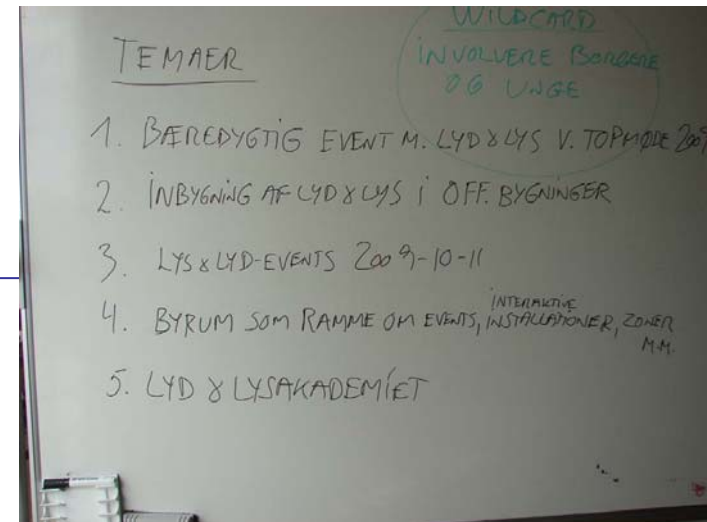 WILDCARD
INVOLVERE BORGERE
OG UNGE
TEMAER
1. BÆREDYGTIG EVENT M. LYD & LYS V. TOPMØDE 2009
2. INBYGNING AF LYD & LYS I OFF. BYGNINGER
3. LYS & LYD-EVENTS 2009-10-11
4. BYRUM SOM RAMME OM EVENTS, INTERAKTIVE INSTALLATIONER, ZONER
M.M.
5. LYD & LYSAKADEMIET